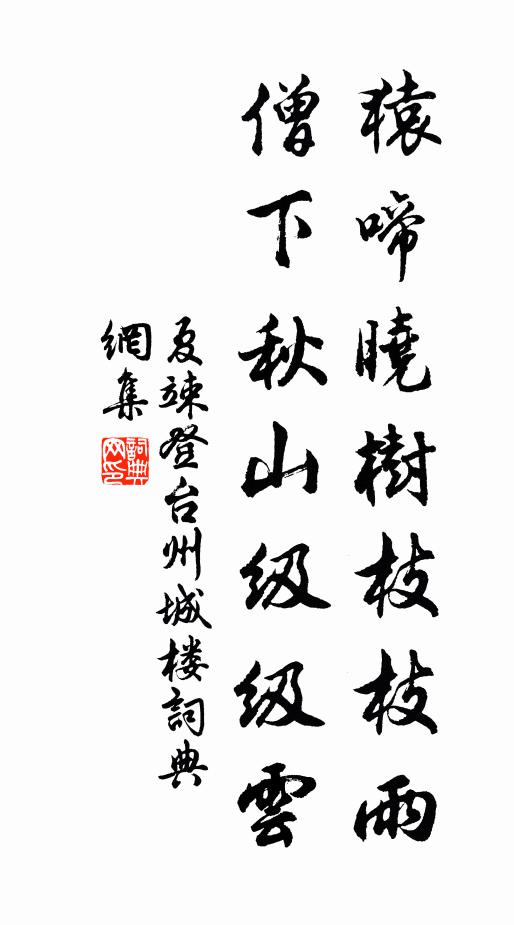 猿啼曉樹枝枝雨
僧下秋山级级雲
夏竦登台州城楼詞典
網集
詞典
网印